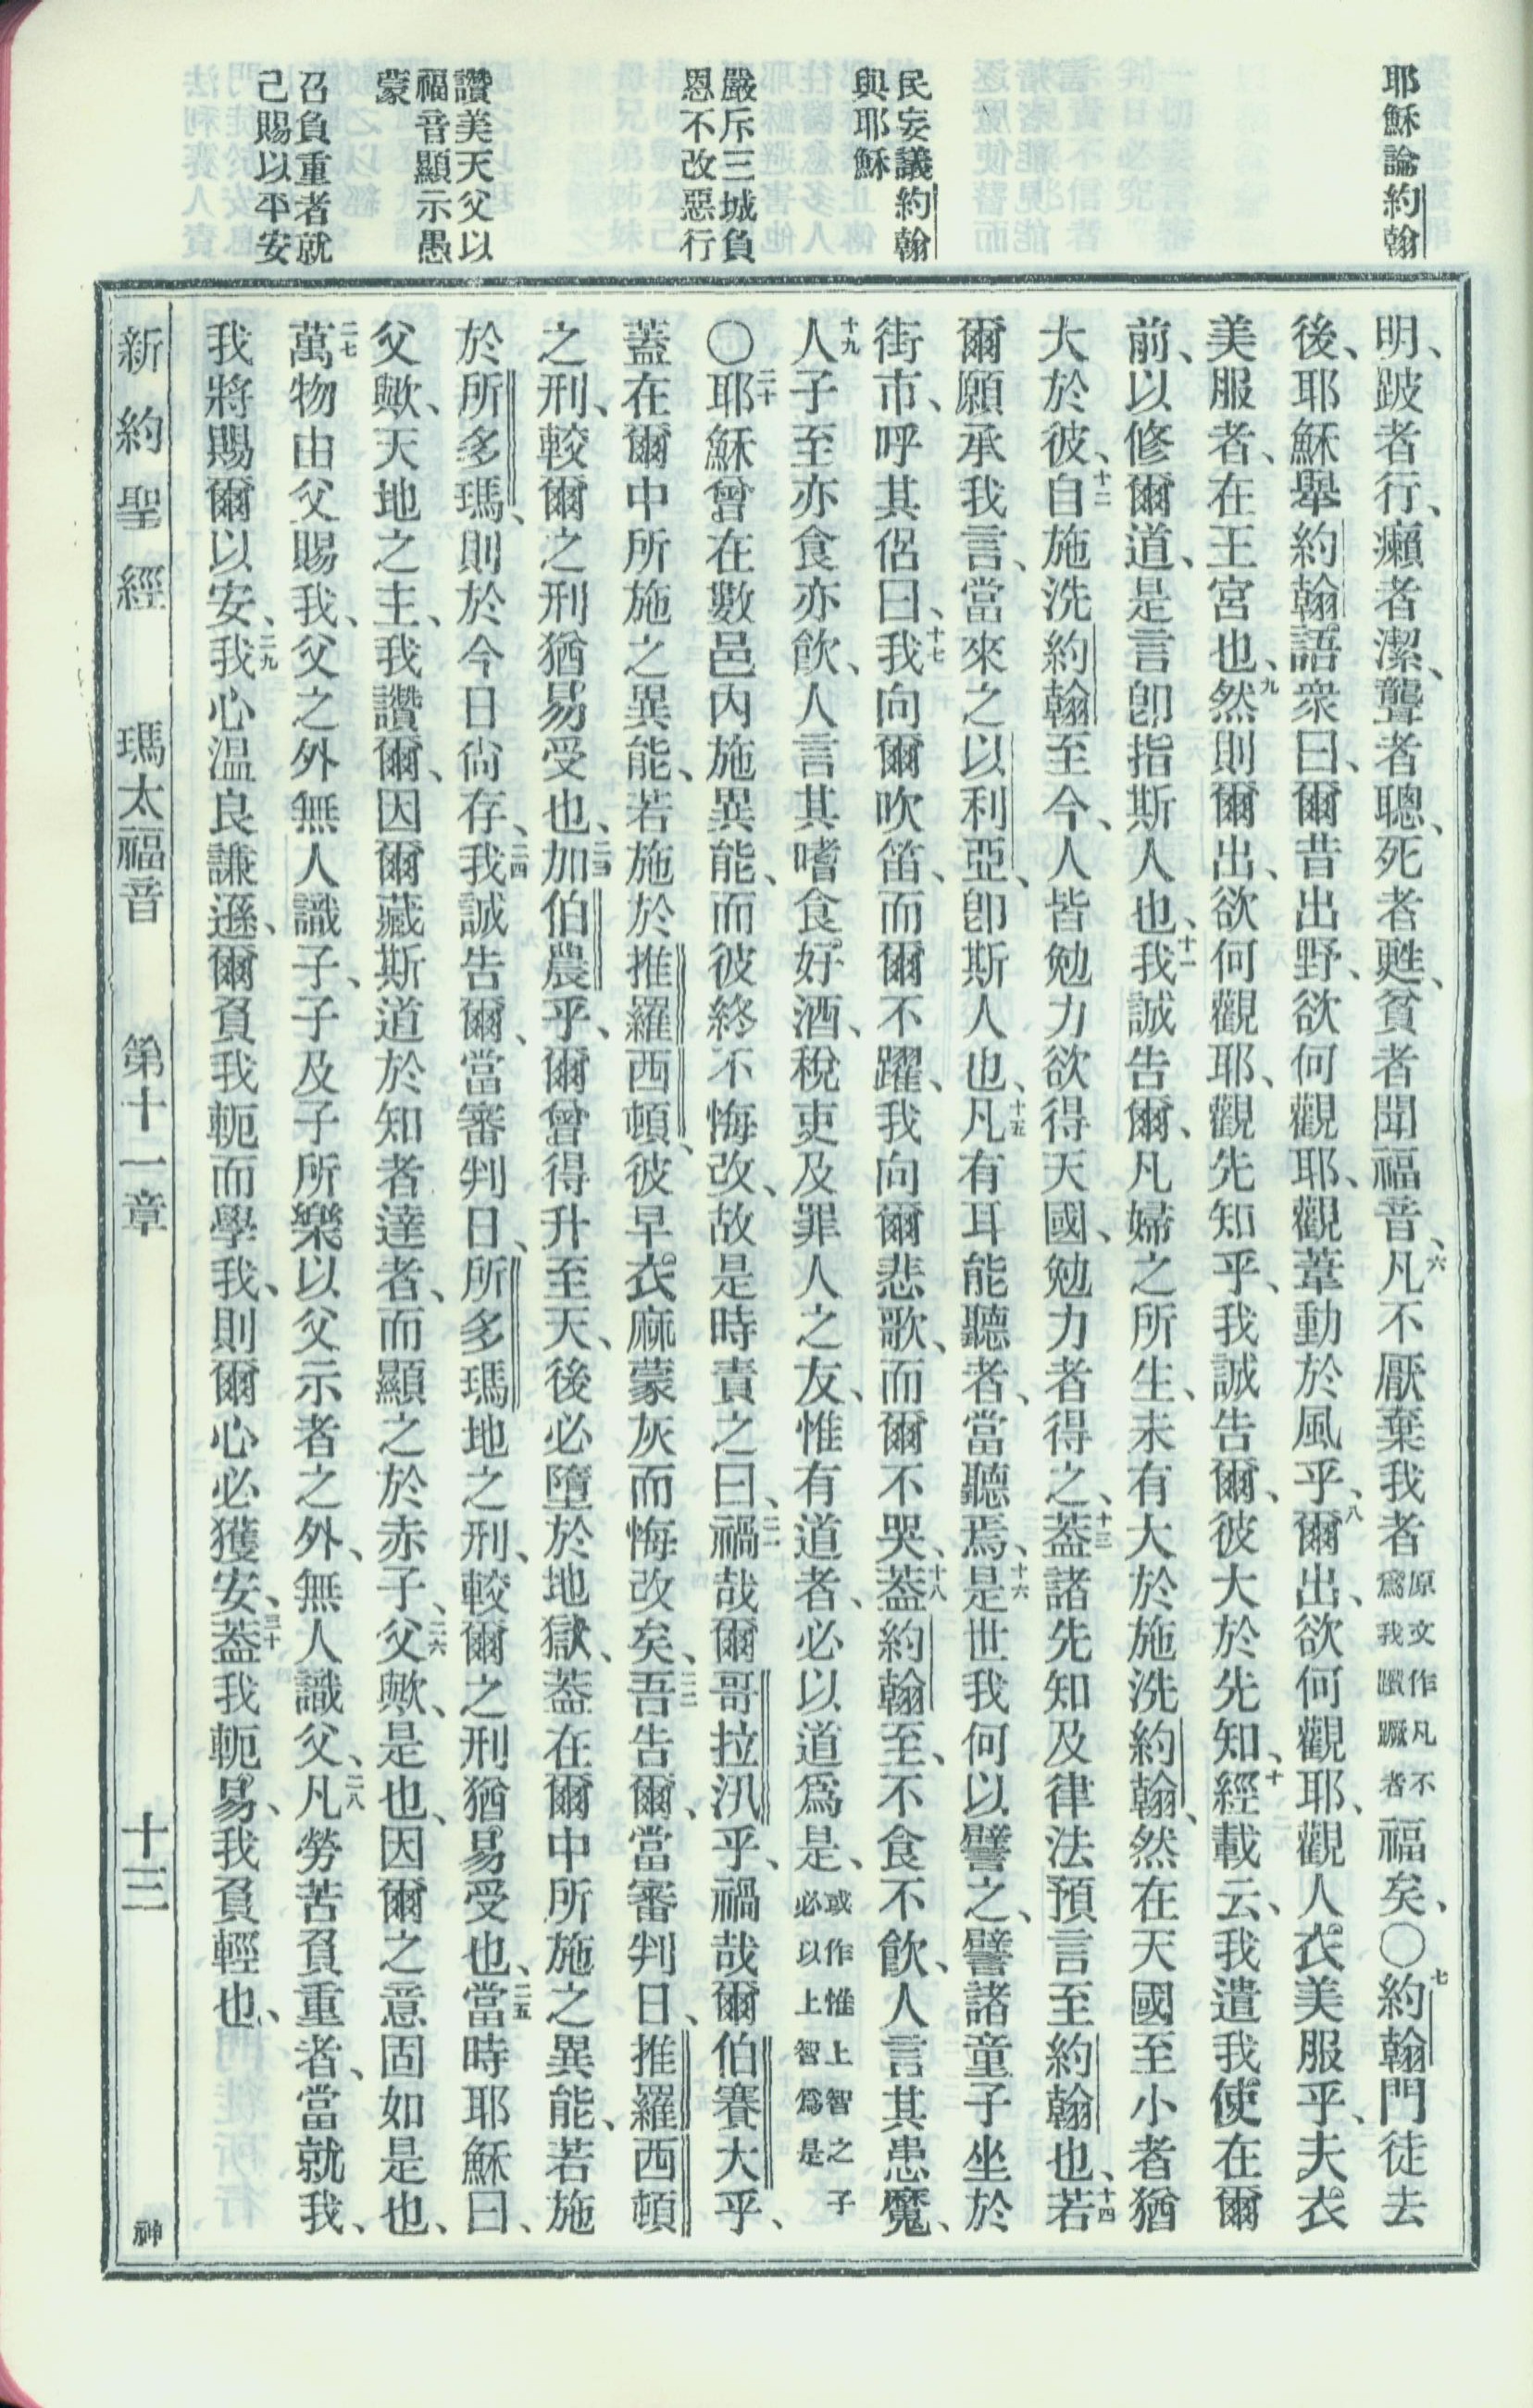 耶穌論約翰
民妄議約翰
與耶穌
嚴斥三城負
恩不改惡行
讚美天父以
福音顯示愚
蒙
召負重者就
己賜以平安
明、跛者行、癩者潔、聾者聰、死者甦、貧者聞福音、六凡不厭棄我者原文作凡不爲我躓蹶者福矣、〇七約翰門徒去
後、耶穌舉約翰語衆曰、爾昔出野、欲何觀耶、觀葦動於風乎、八爾出、欲何觀耶、觀人衣美服乎、夫衣
美服者、在王宮也、九然則爾出、欲何觀耶、觀先知乎、我誠告爾、彼大於先知、十經載云、我遣我使在爾
前、以修爾道、是言卽指斯人也、十一我誠告爾、凡婦之所生、未有大於施洗約翰、然在天國至小者猶
大於彼、十二自施洗約翰至今、人皆勉力欲得天國、勉力者得之、十三蓋諸先知及律法預言至約翰也、十四若
爾願承我言、當來之以利亞、卽斯人也、十五凡有耳能聽者、當聽焉、十六是世我何以譬之、譬諸童子坐於
街市、呼其侶曰、十七我向爾吹笛、而爾不躍、我向爾悲歌、而爾不哭、十八蓋約翰至、不食不飲、人言其患魔、
十九人子至亦食亦飲、人言其嗜食好酒、稅吏及罪人之友、惟有道者、必以道爲是、或作惟上智之子必以上智爲是
〇二十耶穌曾在數邑內施異能、而彼終不悔改、故是時責之曰、二一禍哉爾哥拉汛乎、禍哉爾伯賽大乎、
蓋在爾中所施之異能、若施於推羅西頓、彼早衣麻蒙灰而悔改矣、二二吾告爾、當審判日、推羅西頓
之刑、較爾之刑猶易受也、二三加伯農乎、爾曾得升至天、後必墮於地獄、蓋在爾中所施之異能、若施
於所多瑪、則於今日尙存、二四我誠告爾、當審判日、所多瑪地之刑、較爾之刑猶易受也、二五當時耶穌曰、
父歟、天地之主、我讚爾、因爾藏斯道於知者達者、而顯之於赤子、二六父歟、是也、因爾之意固如是也、
二七萬物由父賜我、父之外無人識子、子及子所樂以父示者之外、無人識父、二八凡勞苦負重者、當就我、
我將賜爾以安、二九我心溫良謙遜、爾負我軛而學我、則爾心必獲安、三十蓋我軛易、我負輕也、
新約聖經 瑪太福音 第十一章 十三 神